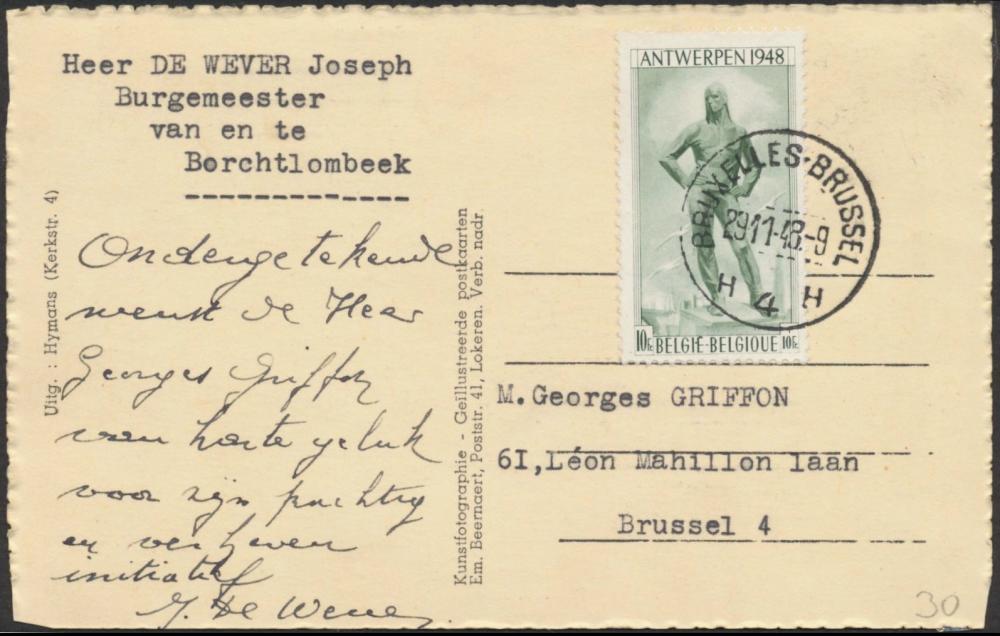 Heer DE WEVER Joseph
Burgemeester
van en te
Borchtlombeek
Ondergetekende
wenst de Heer
Georges Griffon
van harte geluk
voor zijn prachtig
en verheven
initiatief
J. De Wever
Uitg. : Hymans (Kerkstr. 4)
Kunstfotographie - Geïllustreerde postkaarten
Em. Beernaert, Poststr. 41, Lokeren. Verb. nadr
ANTWERPEN 1948
10Fr. BELGIË-BELGIQUE 10Fr.
BRUXELLES-BRUSSEL
29 11-48.-9
H 4 H
M.Georges GRIFFON
6I,Léon Mahillon laan
Brussel 4
30